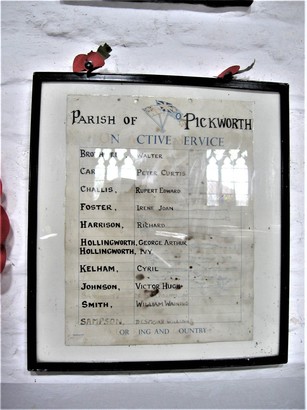 PARISH OF PICKWORTH
ON CTIVE ERVICE
WALTER
CAR PETER CURTIS
CHALLIS, RUPERT EDWARD
FOSTER, IRENE JOAN
HARRISON, RICHARD
HOLLINGWORTH, GEORGE ARTHUR
HOLLINGWORTH, IVY
KELHAM, CYRIL
JOHNSON, VICTOR HUGH
SMITH, WILLIAM
SAMPSON,
OR ING AND OUNTRY